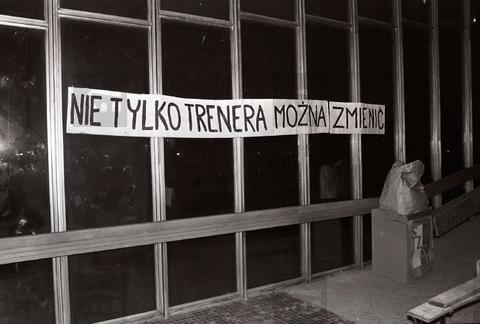 NIE TYLKO TRENERA MOŻNA ZMIENIĆ